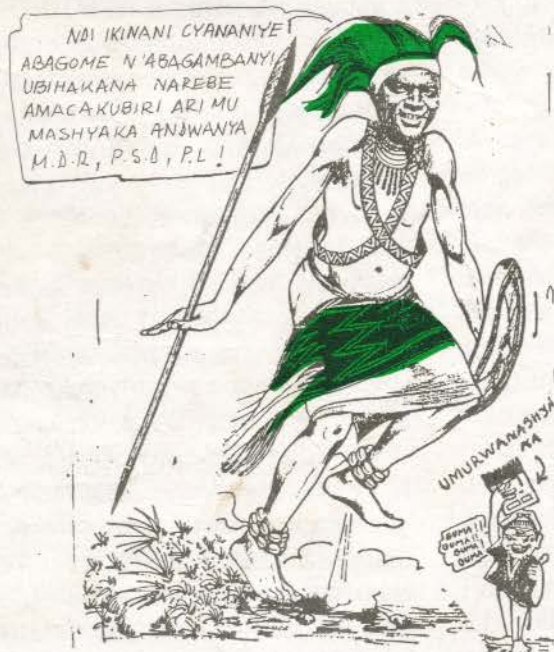 NDI IKINANI CYANANIYE
ABAGOME N'ABAGAMBANYI,
UBIHAKANA NAREBE
AMACAKUBIRI ARI MU
MASHYAKA ANDWANYA
M.D.R, P.S.D, P.L !
UMURWANASHYA
KA